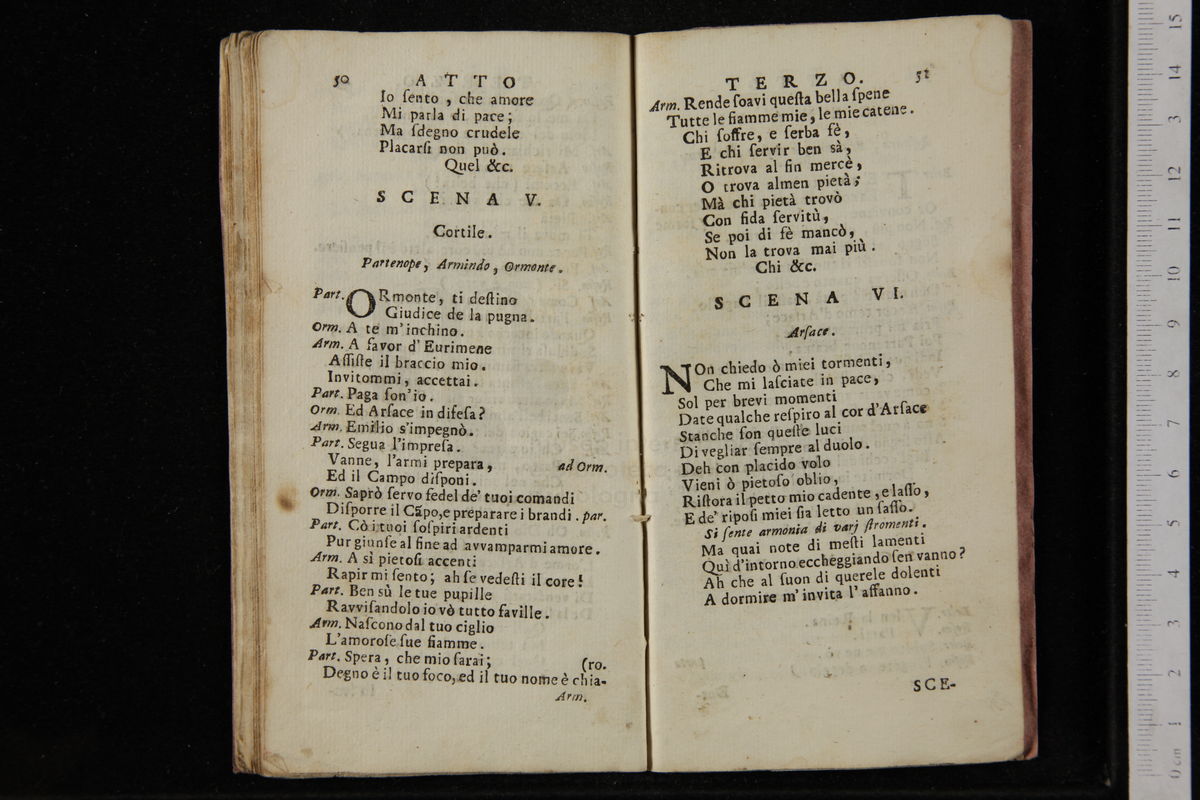 50 ATTO
Io ſento , che amore
Mi parla di pace ;
Ma ſdegno crudele
Placarſi non può .
Quel &c.
SCENA V.
Cortile .
Partenope , Armindo , Ormonte .
Part. ORmonte , ti deſtino
Giudice de la pugna .
Orm. A te m'inchino .
Arm. A favor d'Eurimene
Aſſiſte il braccio mio .
Invitommi , accettai .
Part. Paga ſon'io .
Orm. Ed Arſace in difeſa ?
Arm. Emilio s'impegnò .
Part. Segua l'impreſa .
Vanne , l'armi prepara , ad Orm.
Ed il Campo diſponi .
Orm. Saprò ſervo fedel de' tuoi comandi
Diſporre il Cāpo, e preparare i brandi . par.
Part. Cò i tuoi ſoſpiri ardenti
Pur giunſe al fine ad avvamparmi amore .
Arm. A sì pietoſi accenti
Rapir mi ſento ; ah ſe vedeſti il core !
Part. Ben sù le tue pupille
Ravviſandolo io vò tutto faville .
Arm. Naſcono dal tuo ciglio
L'amoroſe ſue fiamme .
Part. Spera , che mio ſarai ; (ro.
Degno è il tuo foco, ed il tuo nome è chia-
Arm.
TERZO. 51
Arm. Rende ſoavi queſta bella ſpene
Tutte le fiamme mie , le mie catene .
Chi ſoffre , e ſerba fè ,
E chi ſervir ben sà ,
Ritrova al fin mercè ,
O trova almen pietà ;
Mà chi pietà trovò
Con fida ſervitù ,
Se poi di fè mancò ,
Non la trova mai più .
Chi &c.
SCENA VI.
Arſace .
NOn chiedo ò miei tormenti ,
Che mi laſciate in pace ,
Sol per brevi momenti
Date qualche reſpiro al cor d'Arſace
Stanche ſon queſte luci
Di vegliar ſempre al duolo .
Deh con placido volo
Vieni ò pietoſo oblio ,
Riſtora il petto mio cadente , e laſſo ,
E de' ripoſi miei ſia letto un ſaſſo .
Si ſente armonia di varj ſtromenti .
Ma quai note di meſti lamenti
Quì d'intorno eccheggiando ſen vanno ?
Ah che al ſuon di querele dolenti
A dormire m'invita l'affanno .
SCE-
0 cm 1 2 3 4 5 6 7 8 9 10 11 12 3 14 15